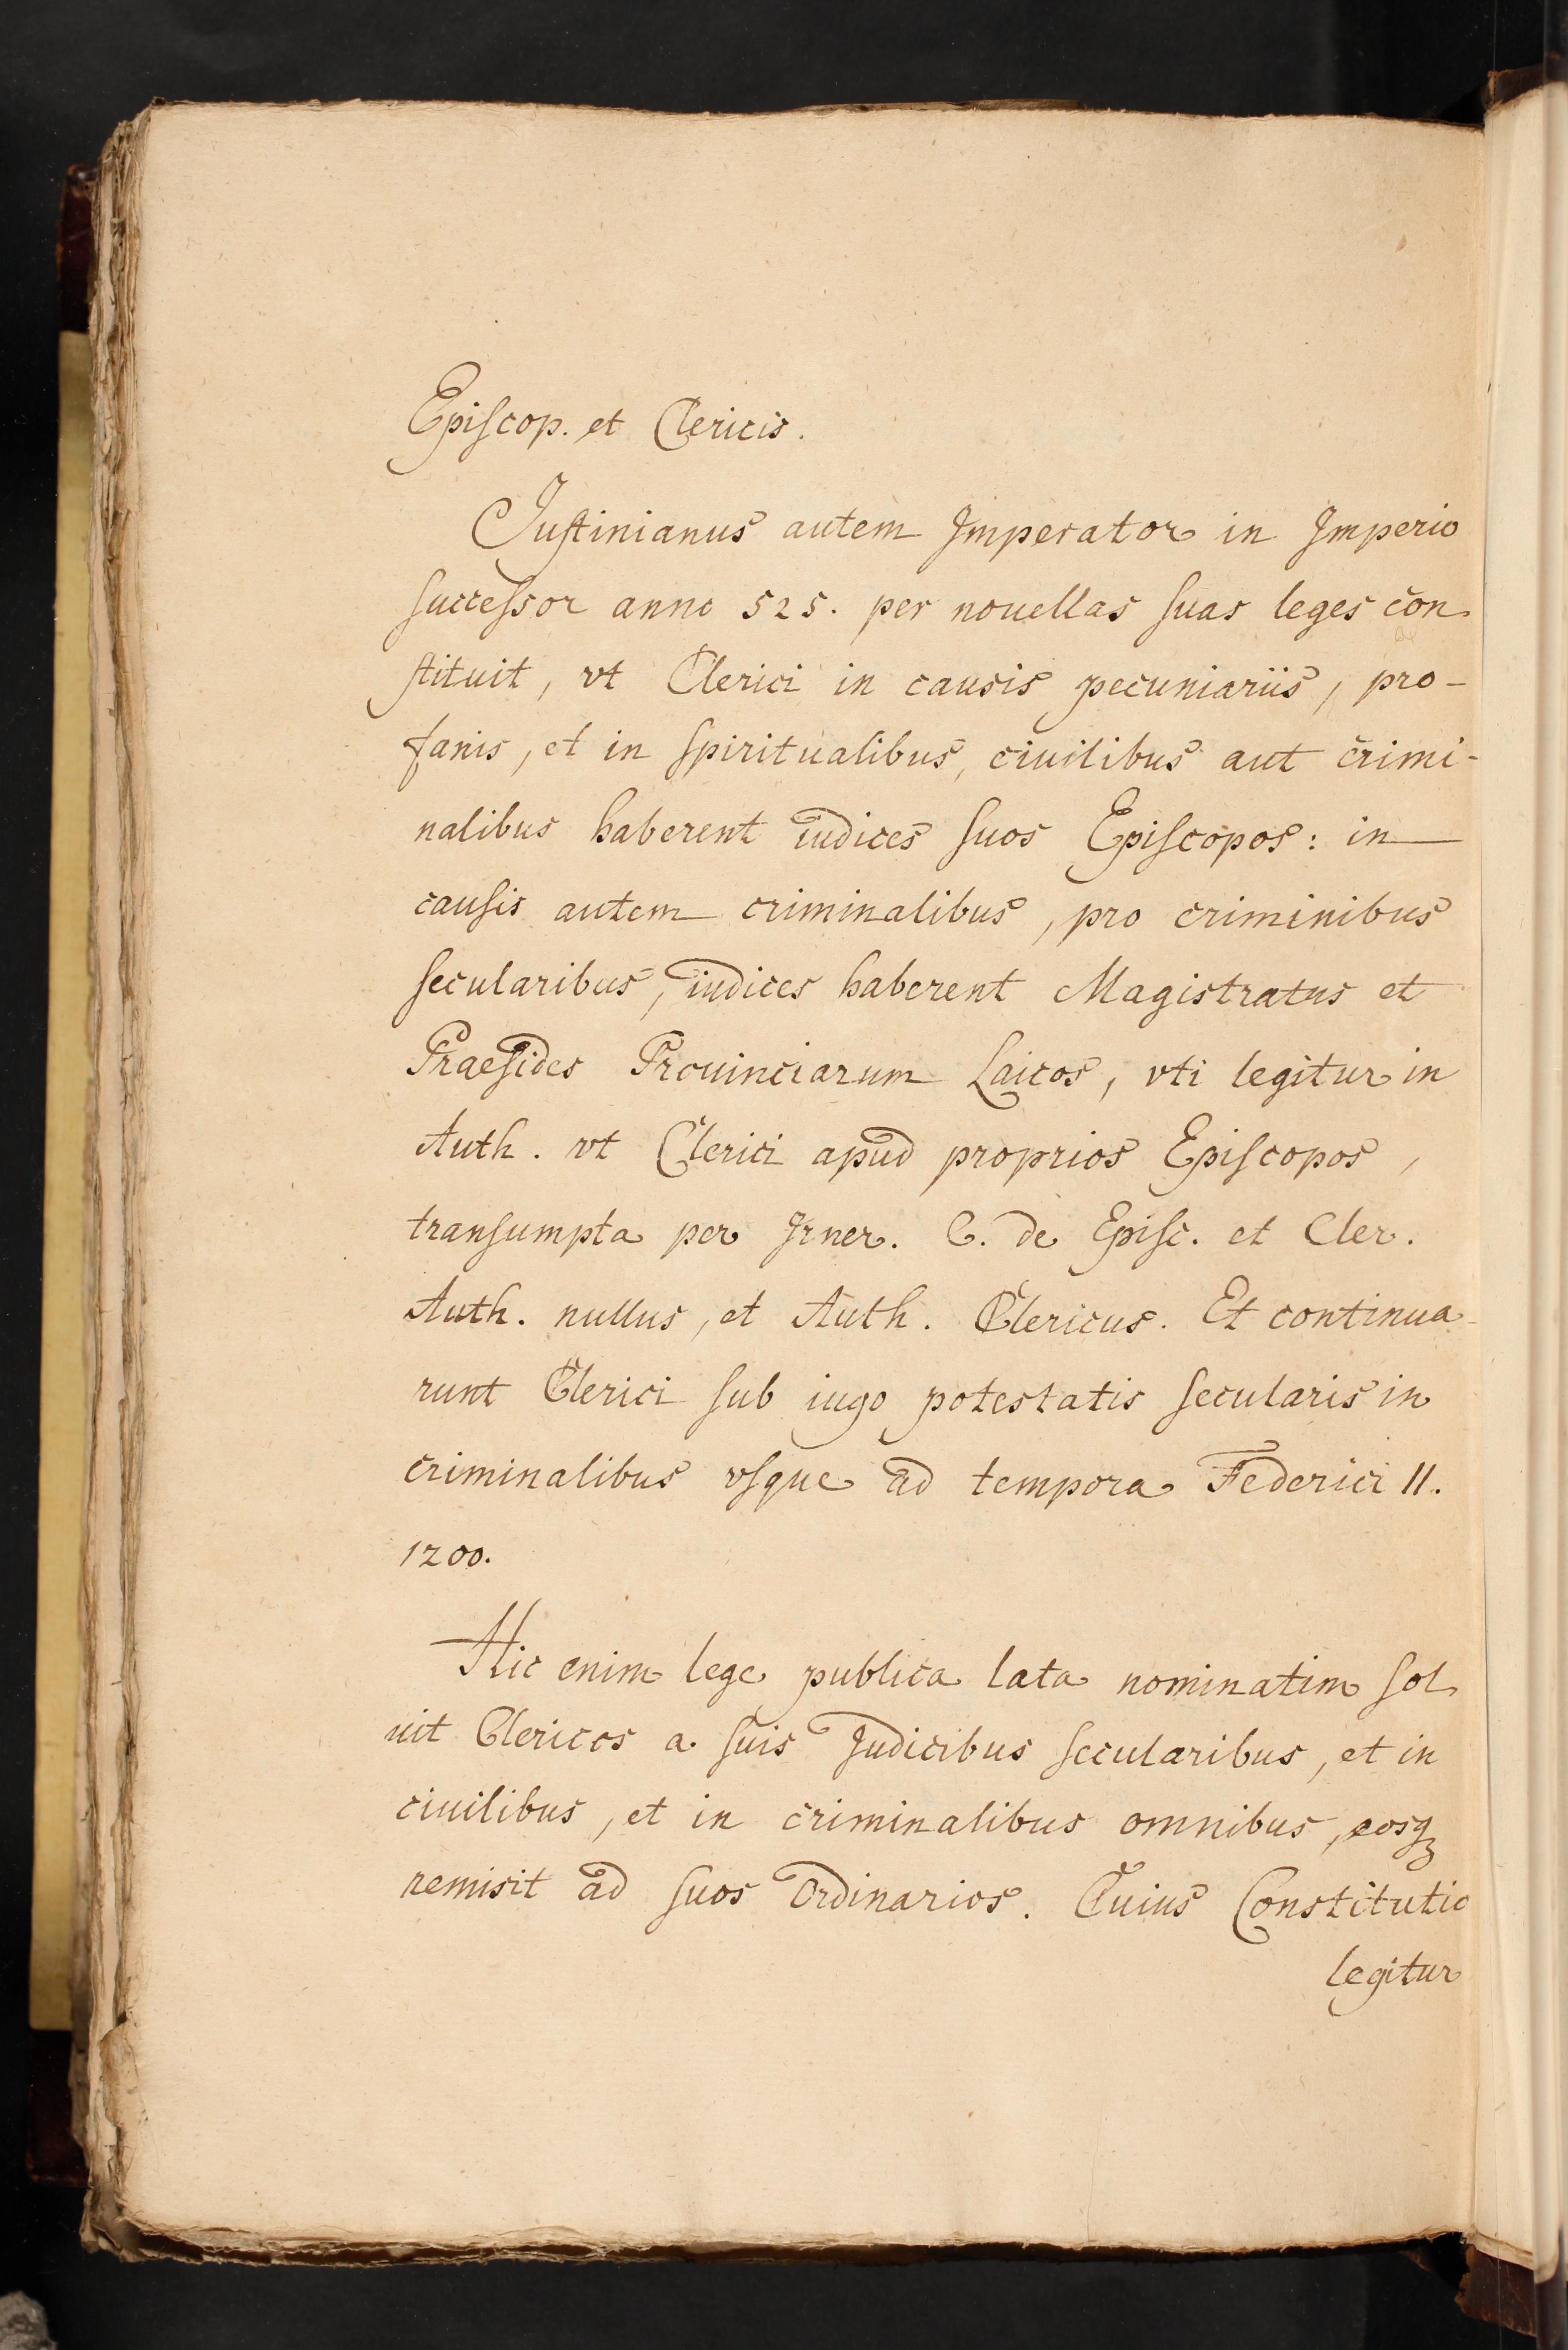 Episcop. et Clericis.
Iustinianus autem Imperator in Imperio
successor anno 525. per nouellas suas leges con
stituit, vt Clerici in causis pecuniariis, pro-
fanis, et in spiritualibus, ciuilibus aut crimi-
nalibus haberent iudices suos Episcopos: in
causis autem criminalibus, pro criminibus
secularibus, iudices haberent Magistratus et
Praesides Prouinciarum Laicos, vti legitur in
Auth. vt Clerici apud proprios Episcopos,
transumpta per Irner. C. de Episc. et Cler.
Auth. nullus, et Auth. Clericus. Et continua-
runt Clerici sub iugo potestatis secularis in
criminalibus vsque ad tempora Federici II.
1200.
Hic enim lege publica lata nominatim sol
uit Clericos a suis Judicibus secularibus, et in
ciuilibus, et in criminalibus omnibus, eosqꝫ
remisit ad suos Ordinarios. Cuius Constitutio
legitur